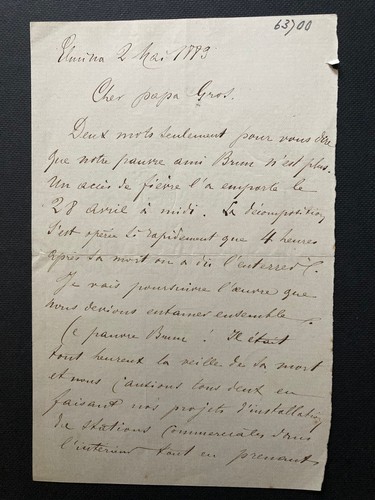 63700
Elmina 2 Mai 1883
Cher papa Gros.
Deux mots seulement pour vous dire
que notre pauvre ami Brun n'est plus.
Un accès de fièvre l'a emporté le
28 avril à midi. La décomposition
s'est opérée si rapidement que 4 heures
après sa mort on a dû l'enterrer.
Je vais poursuivre l'œuvre que
nous devions entamer ensemble.
Ce pauvre Brun ! Il était
tout heureux la veille de sa mort
et nous causions tous deux en
faisant nos projets d'installation
de stations commerciales dans
l'intérieur tout en prenant